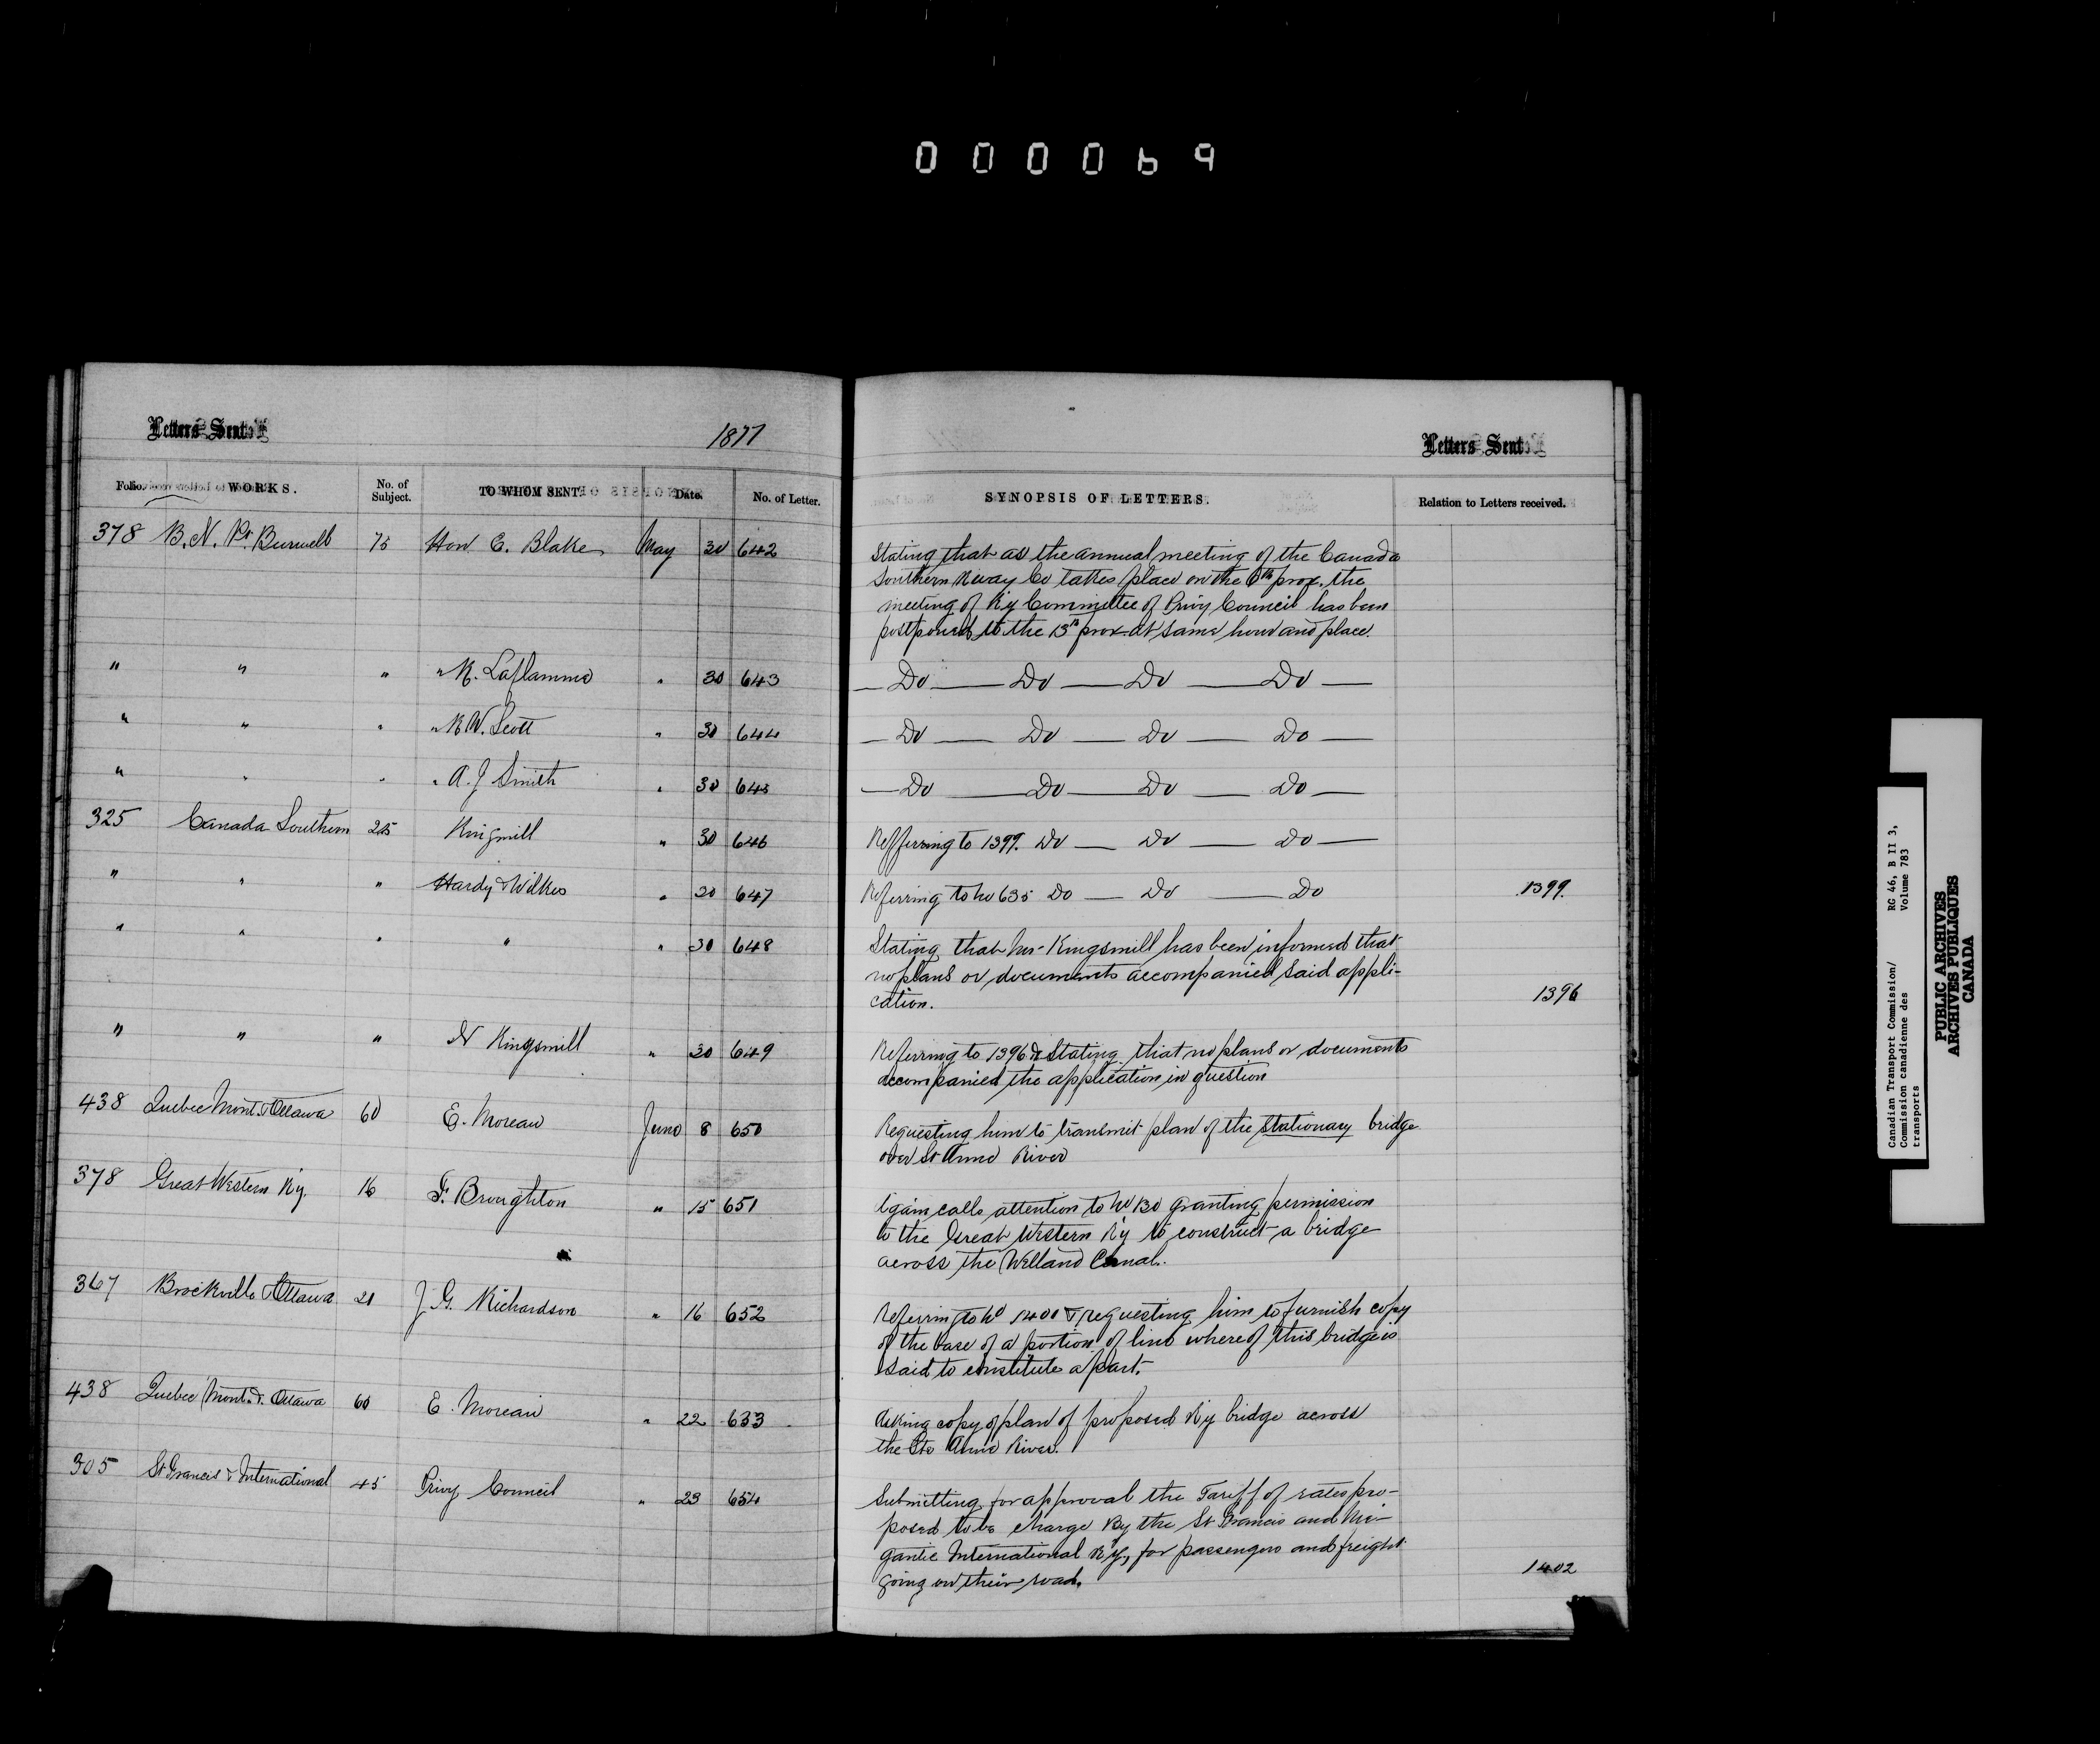 000069
Letters Sent.
1877
Letters Sent.
Folio. WORKS. No. of Subject. TO WHOM SENT. Date. No. of Letter. SYNOPSIS OF LETTERS. Relation to Letters received.
378 B. N. Pt. Burwell 75 Hon E. Blake May 30 642 Stating that as the annual meeting of the Canada
Southern Rway Co takes place on the 6th prox. the
meeting of Ry Committee of Privy Council has been
postponed to the 13th prox. at same hour and place.
" " " " R. Laflamme " 30 643 — Do — Do — Do — Do —
" " " " R. W. Scott " 30 644 — Do — Do — Do — Do —
" " " " A. J Smith " 30 645 — Do — Do — Do — Do —
325 Canada Southern 25 Kingmill " 30 646 Refferring to 1399. Do — Do — Do —
" " " Hardy & Wilkes " 30 647 Referring to No 635 Do — Do — Do 1399.
" " " " " 30 648 Stating that Mr Kingsmill has been informed that
no plans or documents accompanied said appli-
cation. 1396
" " " N Kingsmill " 30 649 Referring to 1396 & Stating that no plans or documents
accompanied the application in question
438 Quebec Mont. & Ottawa 60 E. Moreau June 8 650 Requesting him to transmit plan of the stationary bridge
over St Anne River
378 Great Western Ry. 16 F. Broughton " 15 651 Again calls attention to No 130 granting permission
to the Great Western Ry to construct a bridge
across the Welland Canal.
367 Brockville & Ottawa 21 J. G. Richardson " 16 652 Referring to No 1400 & requesting him to furnish copy
of the lease of a portion of line whereof this bridge is
said to constitute a part.
438 Quebec Mont. & Ottawa 60 E. Moreau " 22 653 Asking copy of plan of proposed Ry bridge across
the Ste Anne River.
305 St Francis & International 45 Privy Council " 23 654 Submitting for approval the Tariff of rates pro-
posed to be charge by the St Francis and Me-
gantic International Ry, for passengers and freight
going on their road. 1402
Canadian Transport Commission/ RG 46, B II 3,
Commission canadienne des Volume 783
transports
PUBLIC ARCHIVES
ARCHIVES PUBLIQUES
CANADA